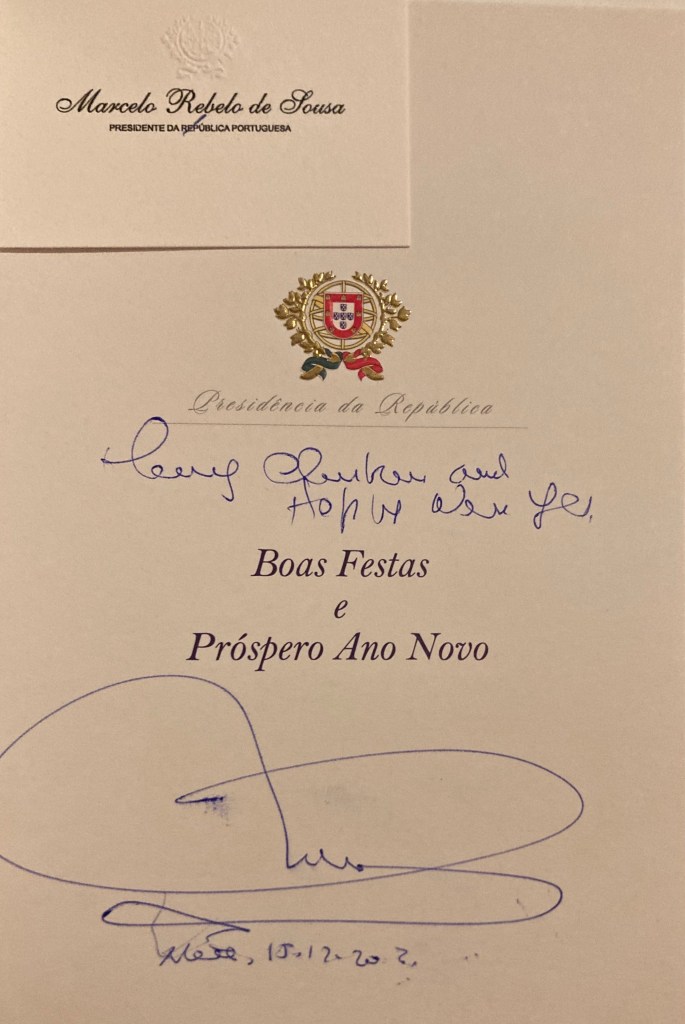 Marcelo Rebelo de Sousa
PRESIDENTE DA REPÚBLICA PORTUGUESA
Presidência da República
and
Happy New
Boas Festas
e
Próspero Ano Novo